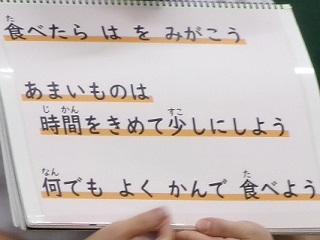 食べたら は を みがこう
あまいものは
時間をきめて少しにしよう
何でも よく かんで 食べよう